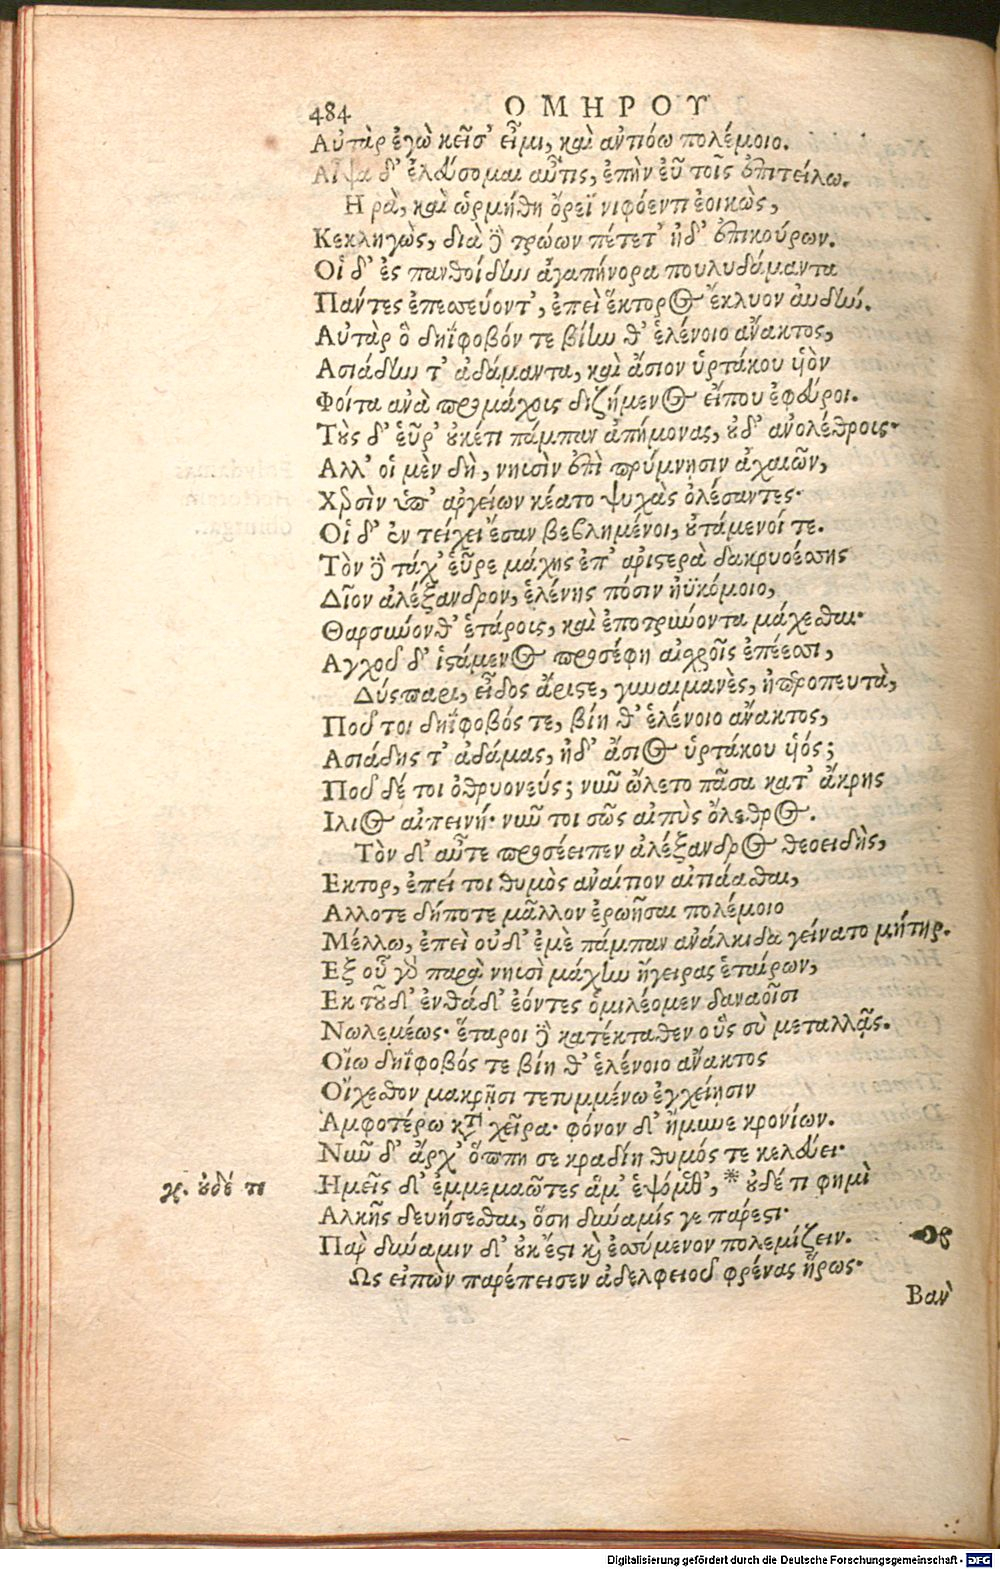 484 ΟΜΗΡΟΥ
Αὐτὰρ ἐγὼ κεῖσ' εἶμι, καὶ ἀντιόω πολέμοιο.
Αἶψα δ' ἐλεύσομαι αὖτις, ἐπὴν εὖ τοῖς ἐπιτείλω.
Η ῥὰ, καὶ ὡρμήθη ὄρεϊ νιφόεντι ἐοικὼς,
Κεκληγὼς, διὰ δὲ τρώων πέτετ' ἠδ' ἐπικούρων.
Οἱ δ' ἐς πανθοίδην ἀγαπήνορα πουλυδάμαντα
Πάντες ἐπεσσεύοντ', ἐπεὶ ἕκτορος ἔκλυον αὐδήν.
Αὐτὰρ ὃ δηΐφοβόν τε βίην θ' ἑλένοιο ἄνακτος,
Ασιάδην τ' ἀδάμαντα, καὶ ἄσιον ὑρτάκου υἱὸν
Φοίτα ἀνὰ προμάχοις διζήμενος εἴπου ἐφεύροι.
Τοὺς δ' εὗρ' οὐκέτι πάμπαν ἀπήμονας, οὐδ' ἀνολέθροις·
Αλλ' οἱ μὲν δὴ, νηυσὶν ἐπὶ πρύμνησιν ἀχαιῶν,
Χερσὶν ὑπ' ἀργείων κέατο ψυχὰς ὀλέσαντες·
Οἱ δ' ἐν τείχει ἔσαν βεβλημένοι, οὐτάμενοί τε.
Τὸν δὲ τάχ' εὗρε μάχης ἐπ' ἀριστερὰ δακρυοέσσης
Δῖον ἀλέξανδρον, ἑλένης πόσιν ἠϋκόμοιο,
Θαρσύνονθ' ἑτάροις, καὶ ἐποτρύνοντα μάχεσθαι·
Αγχοῦ δ' ἱστάμενος προσέφη αἰσχροῖς ἐπέεσσι,
Δύσπαρι, εἶδος ἄριστε, γυναιμανὲς, ἠπεροπευτὰ,
Ποῦ τοι δηΐφοβός τε, βίη θ' ἑλένοιο ἄνακτος,
Ασιάδης τ' ἀδάμας, ἠδ' ἄσιος ὑρτάκου υἱός;
Ποῦ δέ τοι ὀθρυονεύς; νῦν ὤλετο πᾶσα κατ' ἄκρης
Ιλιος αἰπεινή· νῦν τοι σῶς αἰπὺς ὄλεθρος.
Τὸν δ' αὖτε προσέειπεν ἀλέξανδρος θεοειδὴς,
Εκτορ, ἐπεί τοι θυμὸς ἀναίτιον αἰτιάασθαι,
Αλλοτε δήποτε μᾶλλον ἐρωῆσαι πολέμοιο
Μέλλω, ἐπεὶ οὐδ' ἐμὲ πάμπαν ἀνάλκιδα γείνατο μήτηρ.
Εξ οὗ γὰρ παρὰ νηυσὶ μάχην ἤγειρας ἑταίρων,
Εκ τοῦ δ' ἐνθάδ' ἐόντες ὁμιλέομεν δαναοῖσι
Νωλεμέως· ἕταροι δὲ κατέκταθεν οὓς σὺ μεταλλᾷς.
Οἴω δηΐφοβός τε βίη θ' ἑλένοιο ἄνακτος
Οἴχεσθον μακρῇσι τετυμμένω ἐγχείῃσιν
Αμφοτέρω κατὰ χεῖρα· φόνον δ' ἤμυνε κρονίων.
Νῦν δ' ἄρχ' ὅππη σε κραδίη θυμός τε κελεύει·
γρ. οὐδέ τι Ημεῖς δ' ἐμμεμαῶτες ἅμ' ἑψόμεθ', * οὐδέ τι φημὶ
Αλκῆς δευήσεσθαι, ὅση δύναμίς γε πάρεστι·
Πὰρ δύναμιν δ' οὐκ ἔστι καὶ ἐσσύμενον πολεμίζειν.
Ως εἰπὼν παρέπεισεν ἀδελφειοῦ φρένας ἥρως·
Βὰν
Digitalisierung gefördert durch die Deutsche Forschungsgemeinschaft - DFG